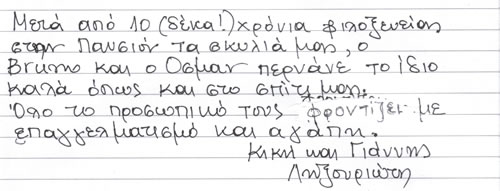 Μετά από 10 (δέκα!) χρόνια φιλοξενείας
στην Πανσιόν τα σκυλιά μου, ο
Bruno και ο Οσμαν περνάνε το ίδιο
καλά όπως και στο σπίτι μου.
Όλο το προσωπικό τους φροντίζει με
επαγγελματισμό και αγάπη.
Κική και Γιάννης